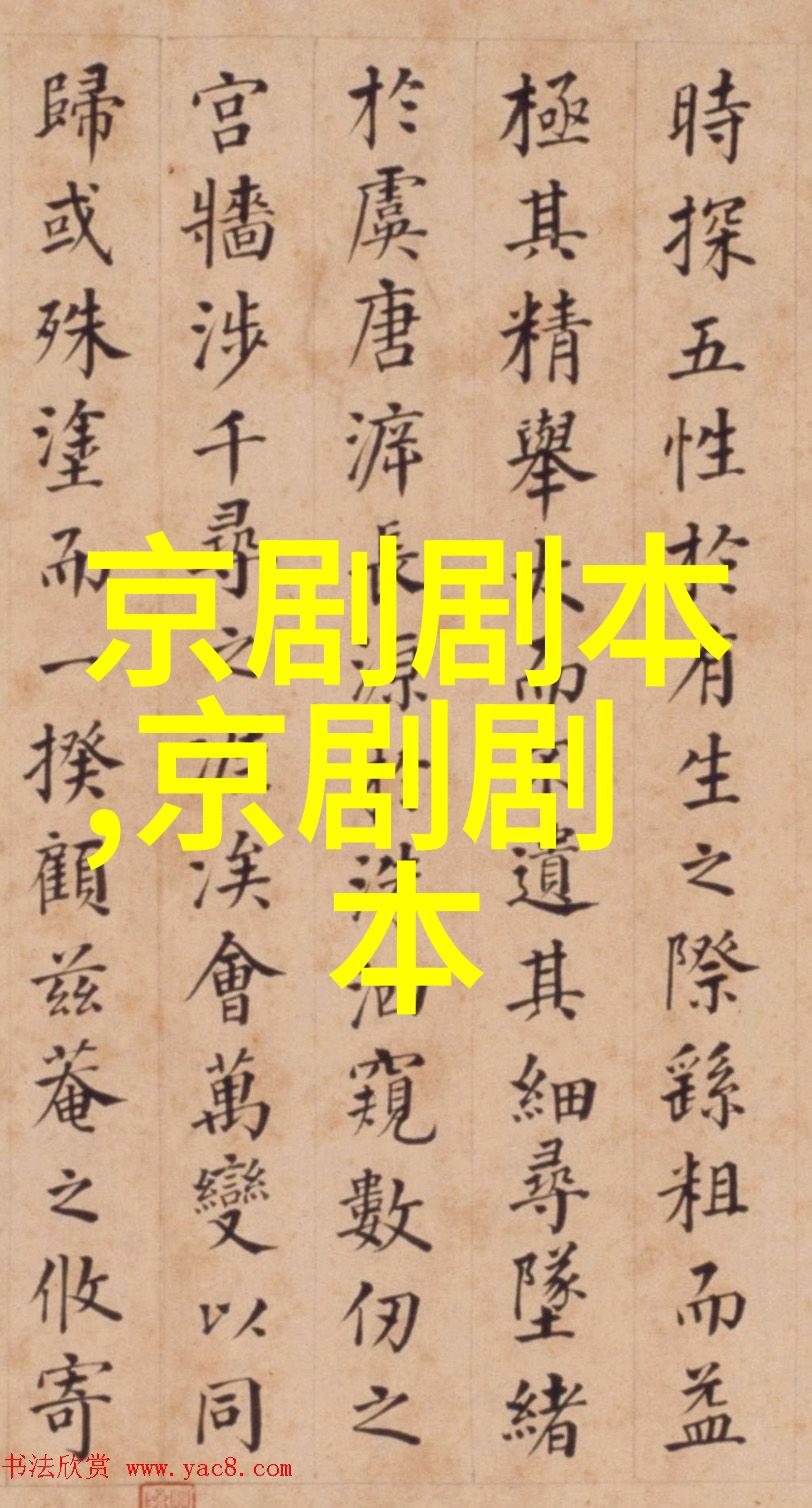 時探五性於有生之際繇粗而益
極其精舉大而不遺其細尋墜緒
於虞唐長源於洙泗窺數仞之
宮牆涉千尋之涯涘會萬變以同
歸或殊塗而一揆顧茲菴之攸寄
京剧剧本
,京剧剧
本
书法欣赏 www.yac8.com